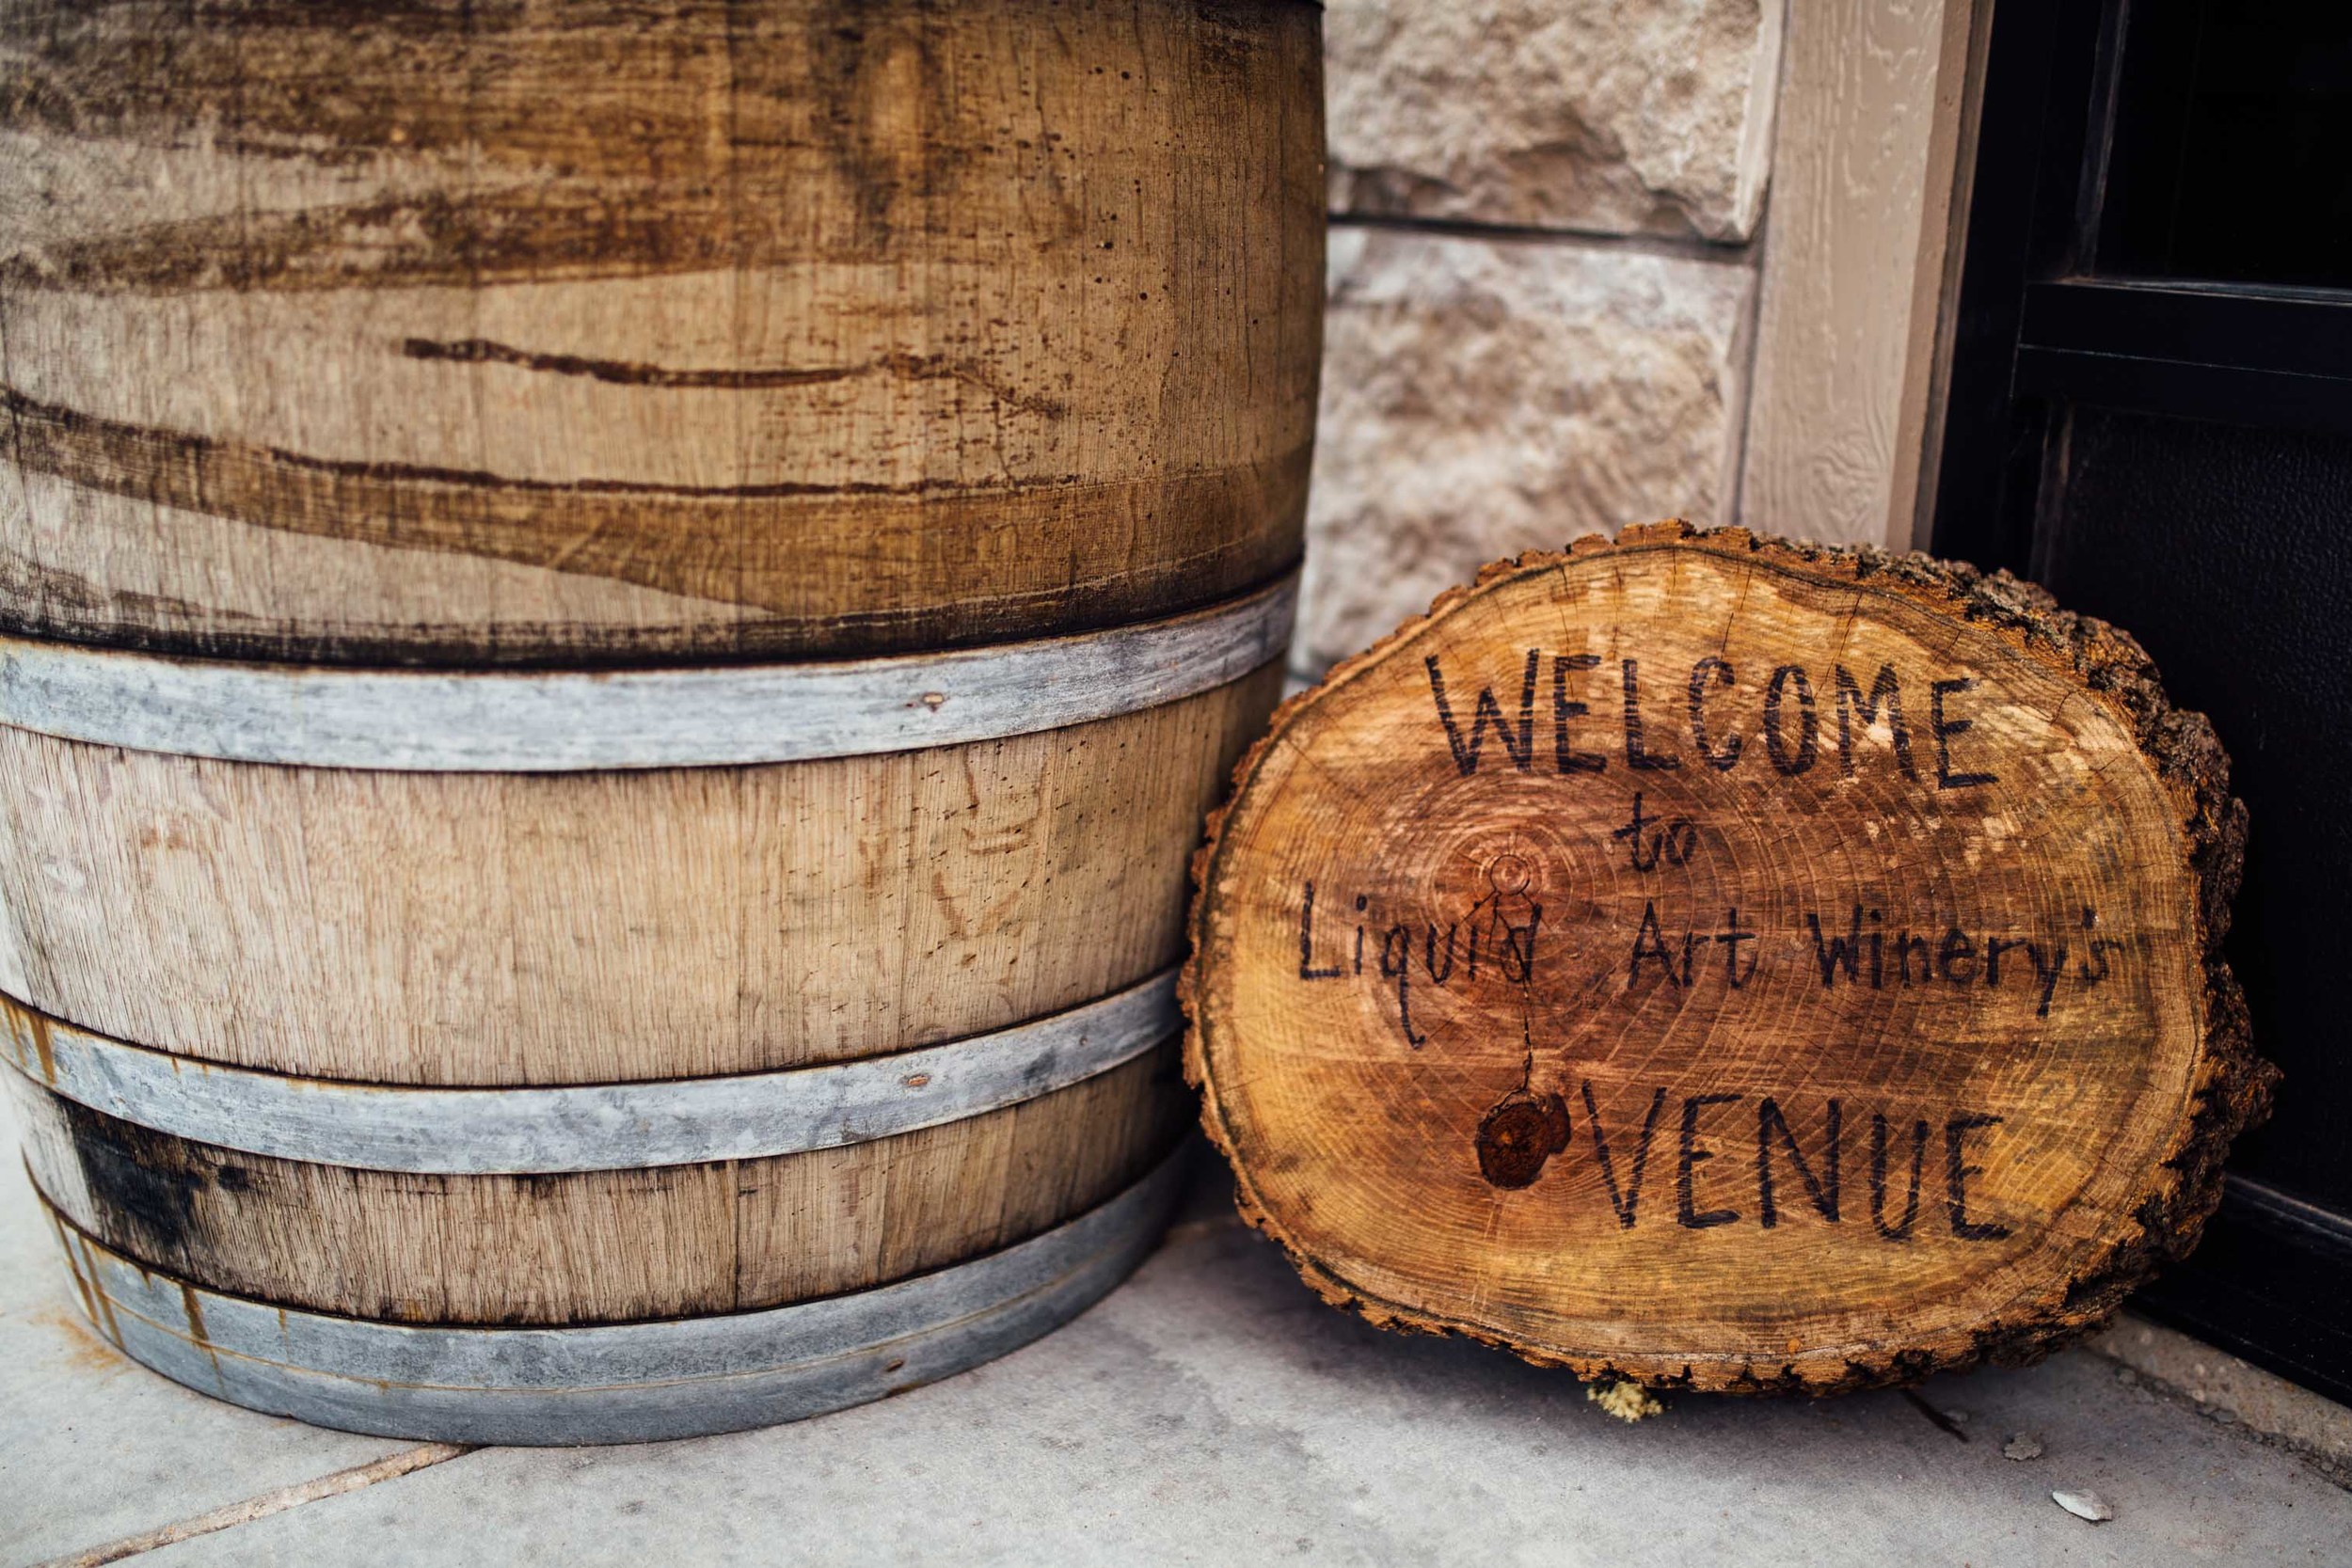 WELCOME
to
Liquid Art Winery's
VENUE